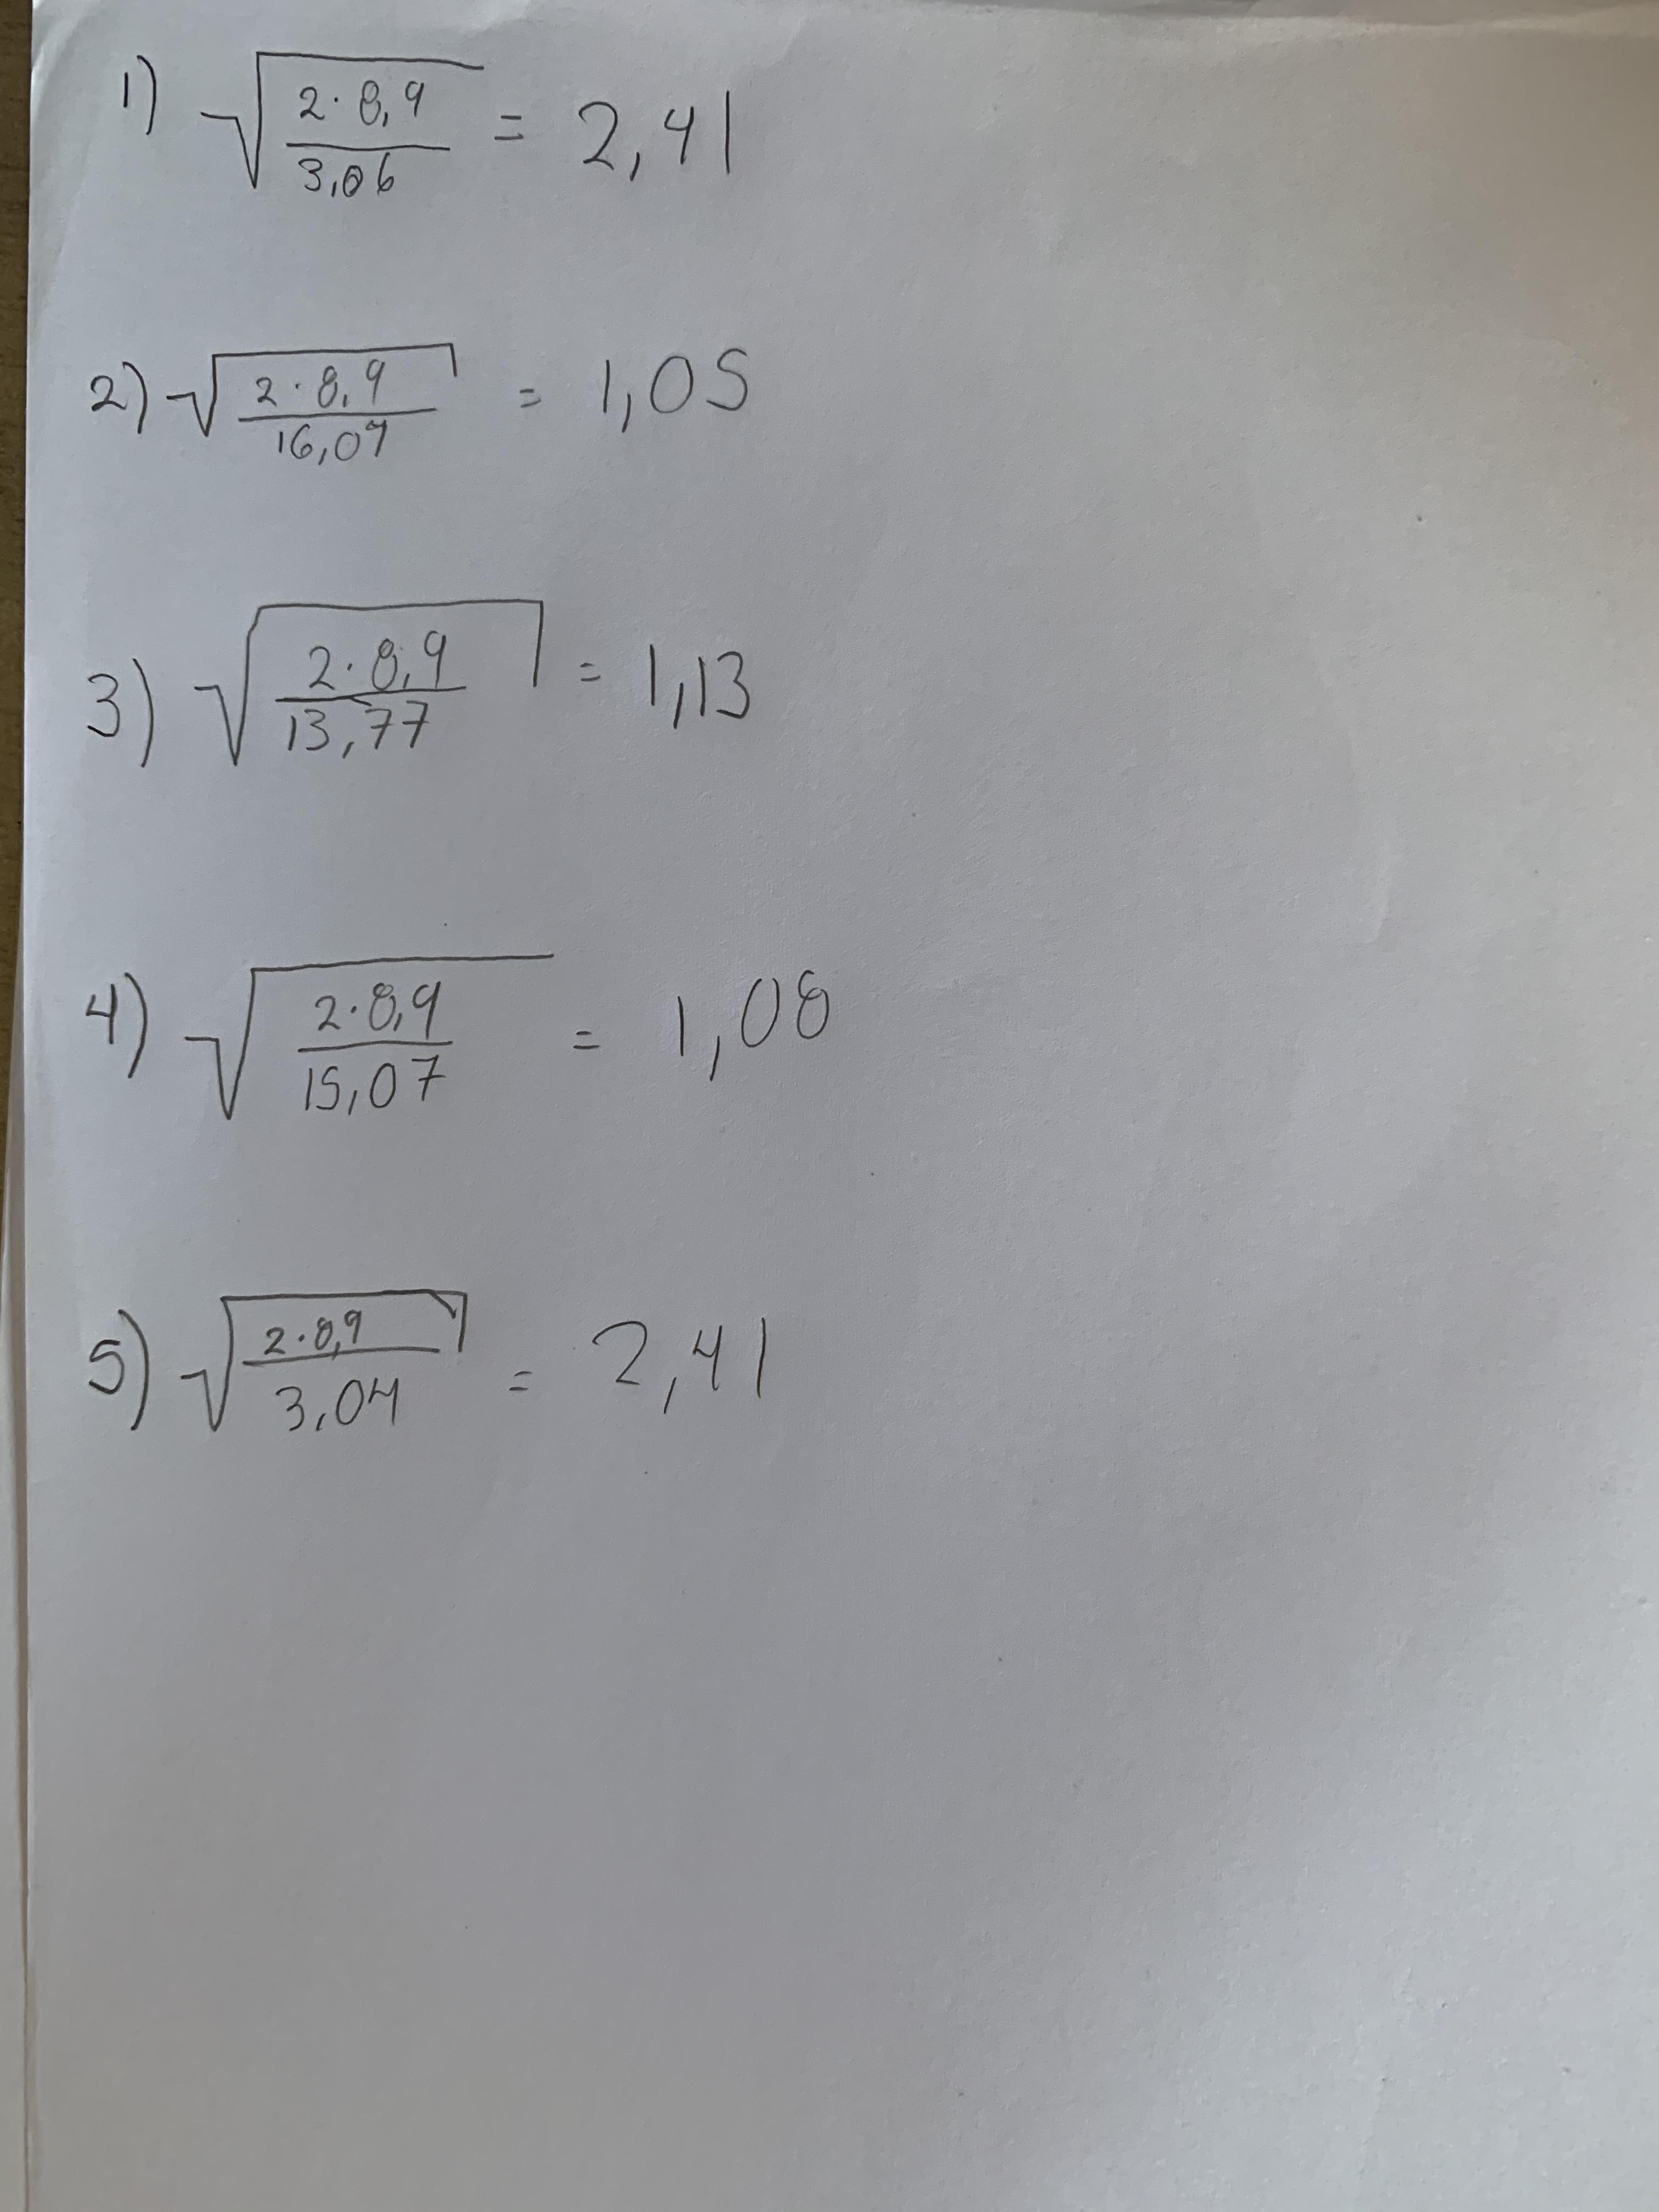 1) √(2·8,9/3,06) = 2,41
2) √(2·8,9/16,07) = 1,05
3) √(2·8,9/13,77) = 1,13
4) √(2·8,9/15,07) = 1,08
5) √(2·8,9/3,04) = 2,41